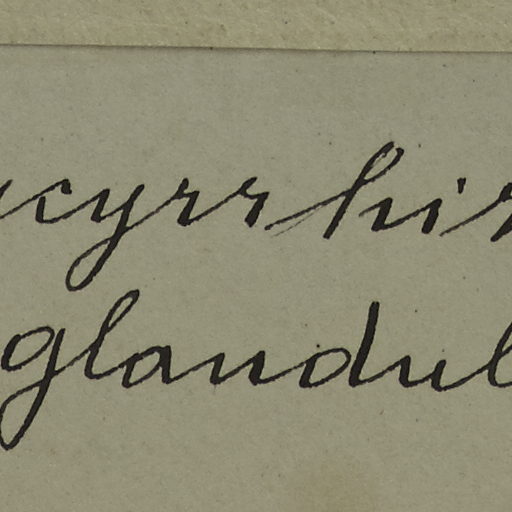 ucyrrhir
glandul